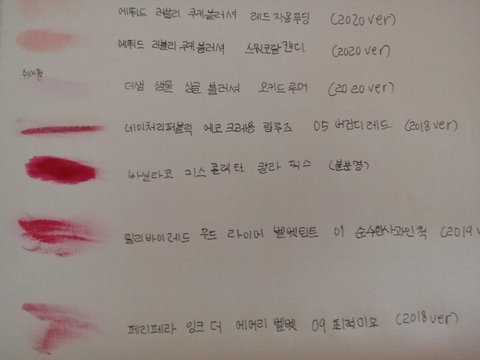 에뛰드 러블리 쿠키 블러셔 레드자몽푸딩 (2020ver)
에뛰드 러블리 쿠키 블러셔 스위트코랄캔디 (2020 ver)
쉬어핑
더샘 샘물 싱글 블러셔 오키드루머 (2020ver)
네이처리퍼블릭 에코 크레용 립루즈 05 버건디레드 (2018 ver)
바닐라코 키스 콜렉터 컬러 픽스 (불분명)
릴리바이레드 무드 라이어 벨벳틴트 01 순수한사과인척 (2019 v
페리페라 잉크 더 에어리 벨벳 09 최적미모 (2018 ver)